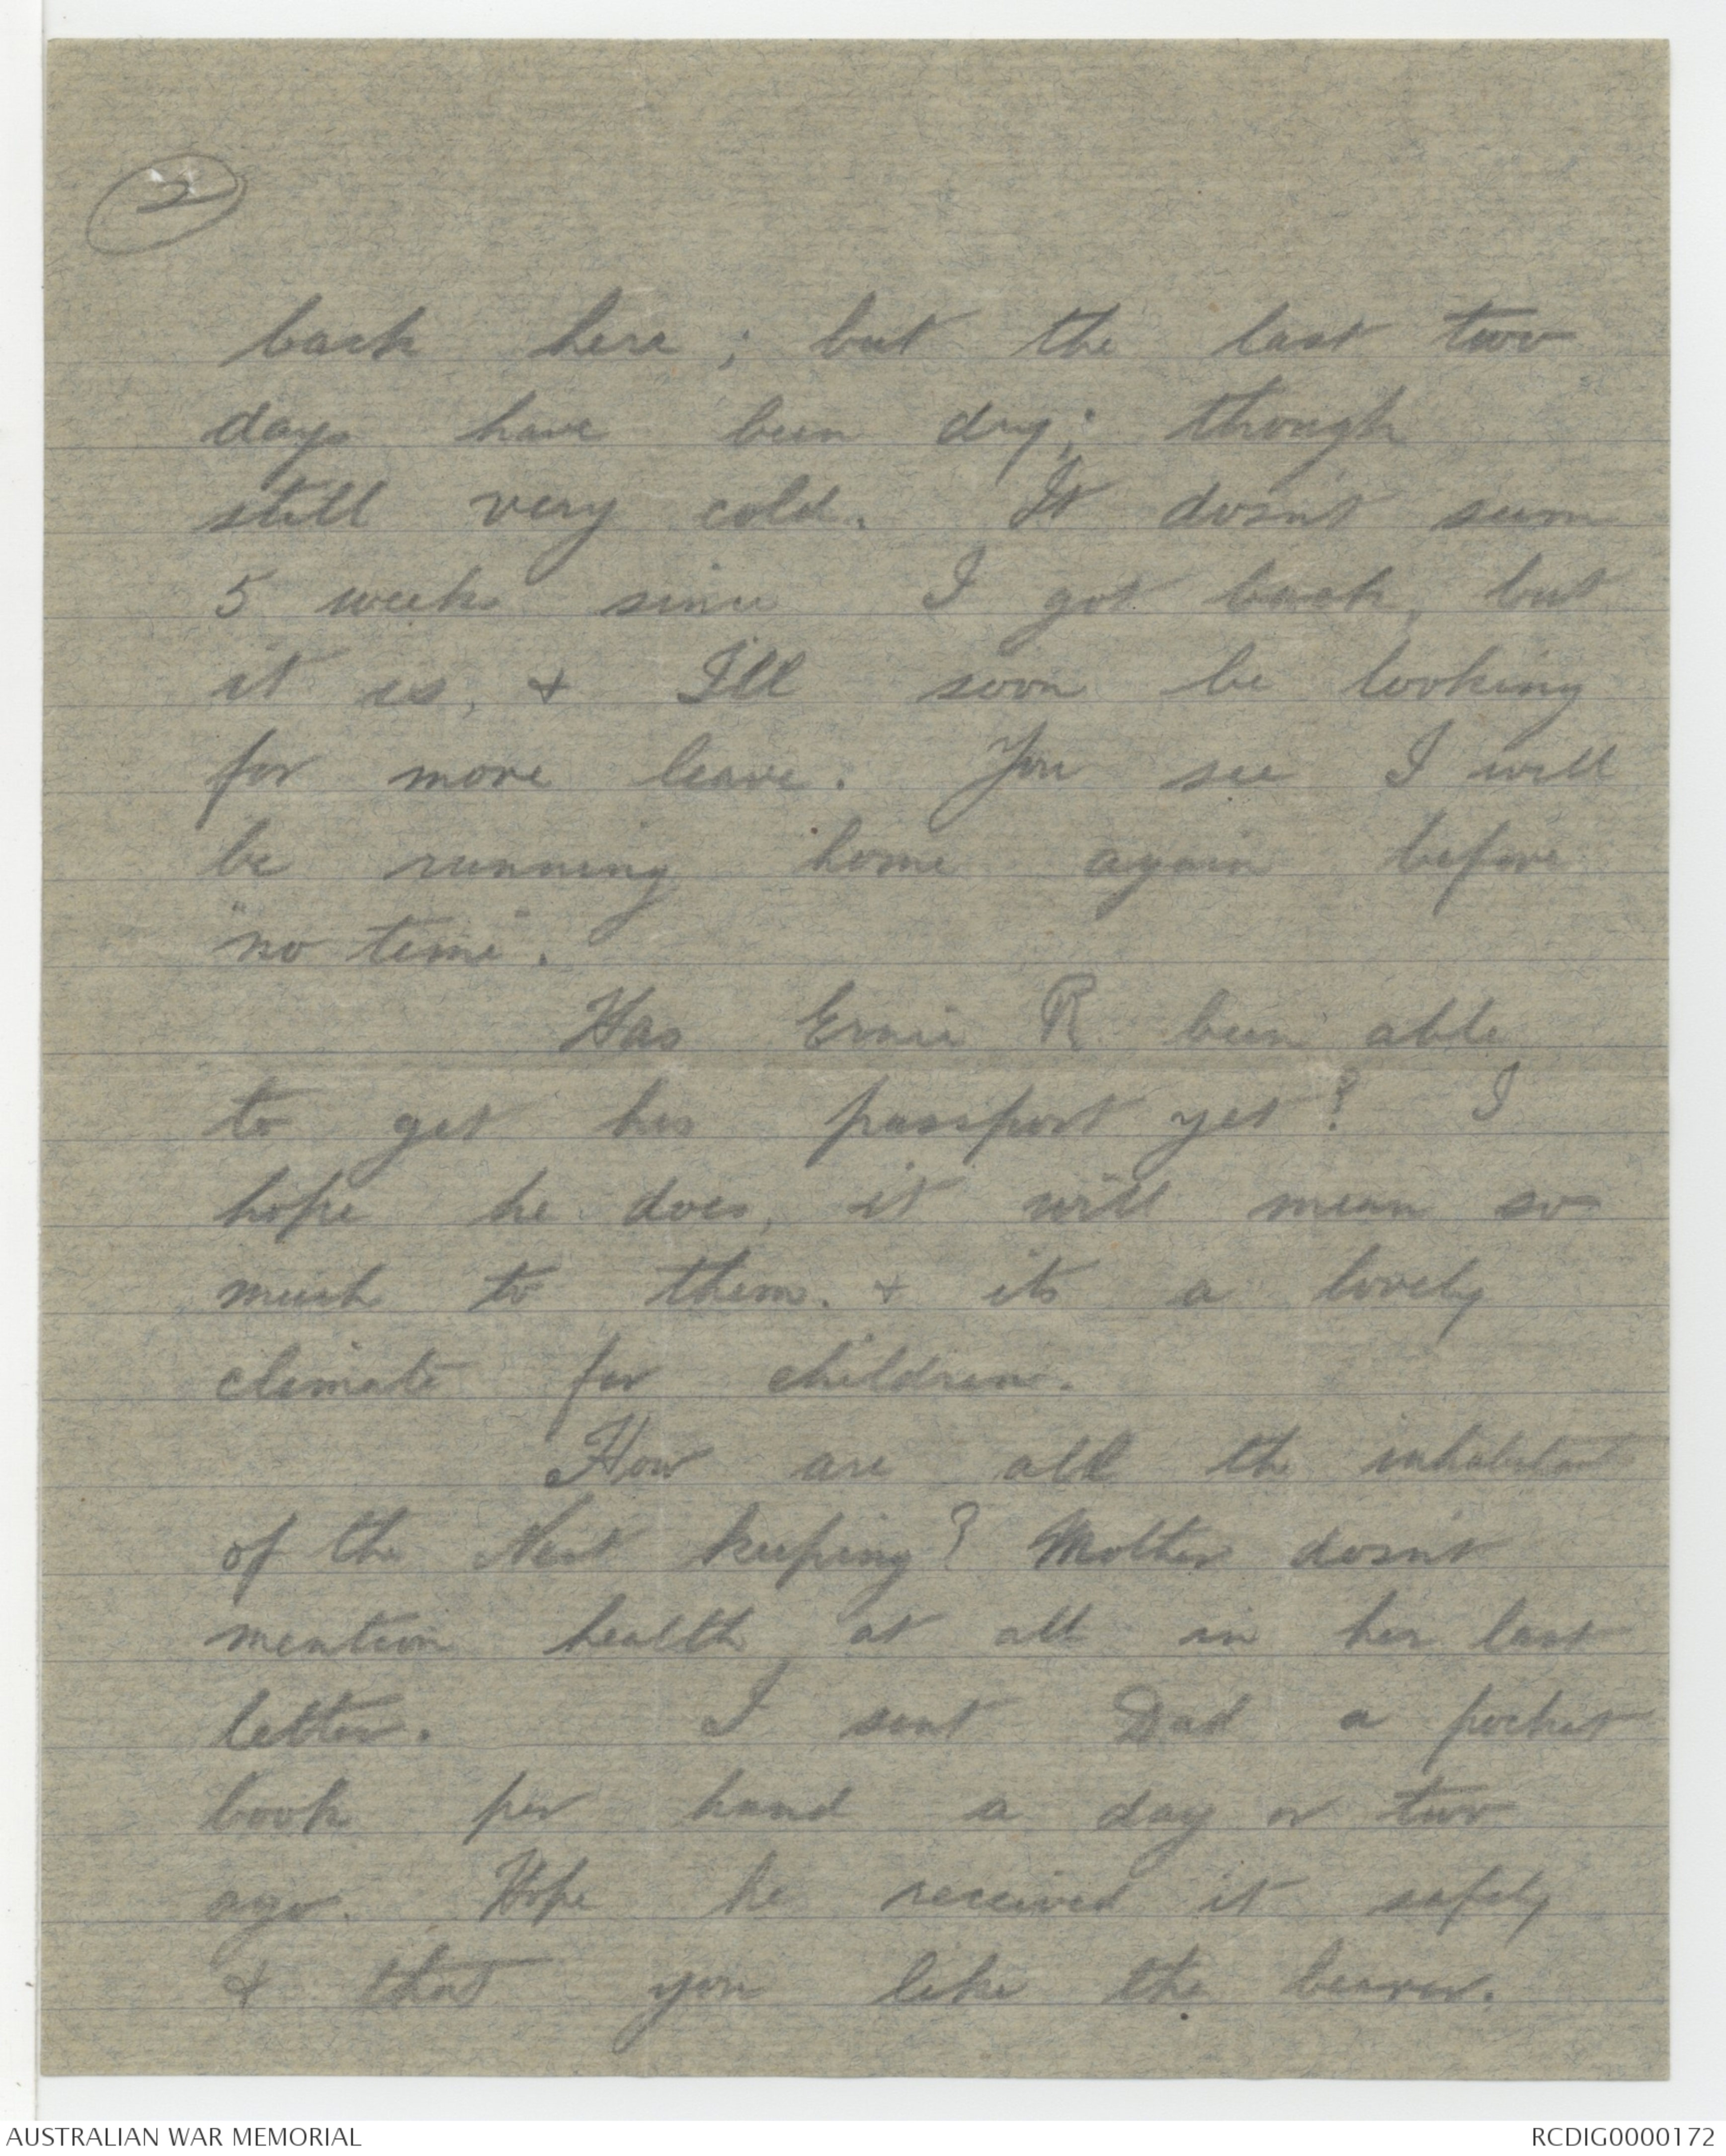 2
back here; but the last two
days have been dry; though
still very cold. It dosnt seem
5 weeks since I got back, but
it is, & I'll soon be looking
for more leave. You see I will
be running home again before
"no time".
Has Ernie R been able
to get his passport yet? I
hope he does, it will mean so
much to them. & its a lovely
climate for children.
How are all the inhabitants
of the Nest keeping? Mother dosnt
mention health at all in her last
letter. I sent Dad a pocket
book per hand a day or two
ago. Hope he received it safely
& that you like the bearer.
AUSTRALIAN WAR MEMORIAL
RCDIG0000172